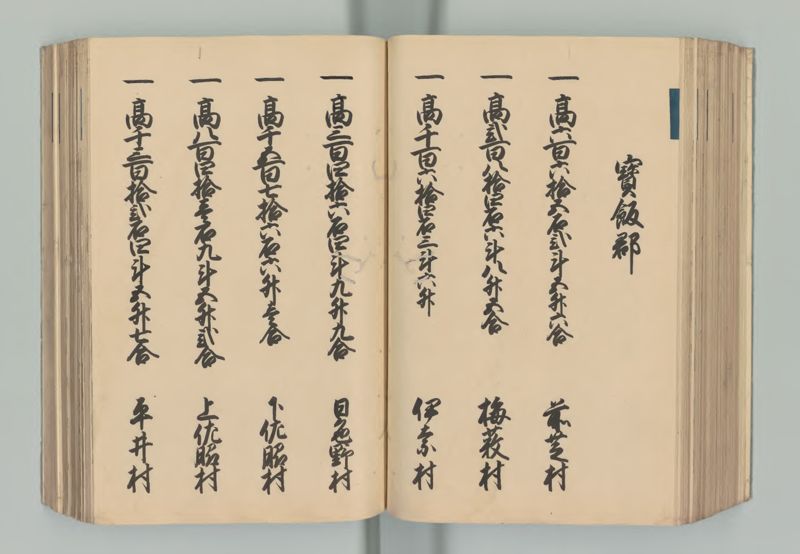 寳飯郡
一 高六百六拾五石弐斗五升六合 前芝村
一 高弐百八拾四石六斗八升五合 梅薮村
一 高千百六拾四石三斗六升 伊奈村
一 高三百四拾六石四斗九升九合 日色野村
一 高千五百七拾六石六升壱合 下佐脇村
一 高八百四拾壱石九斗五升弐合 上佐脇村
一 高千三百拾弐石四斗五升七合 平井村